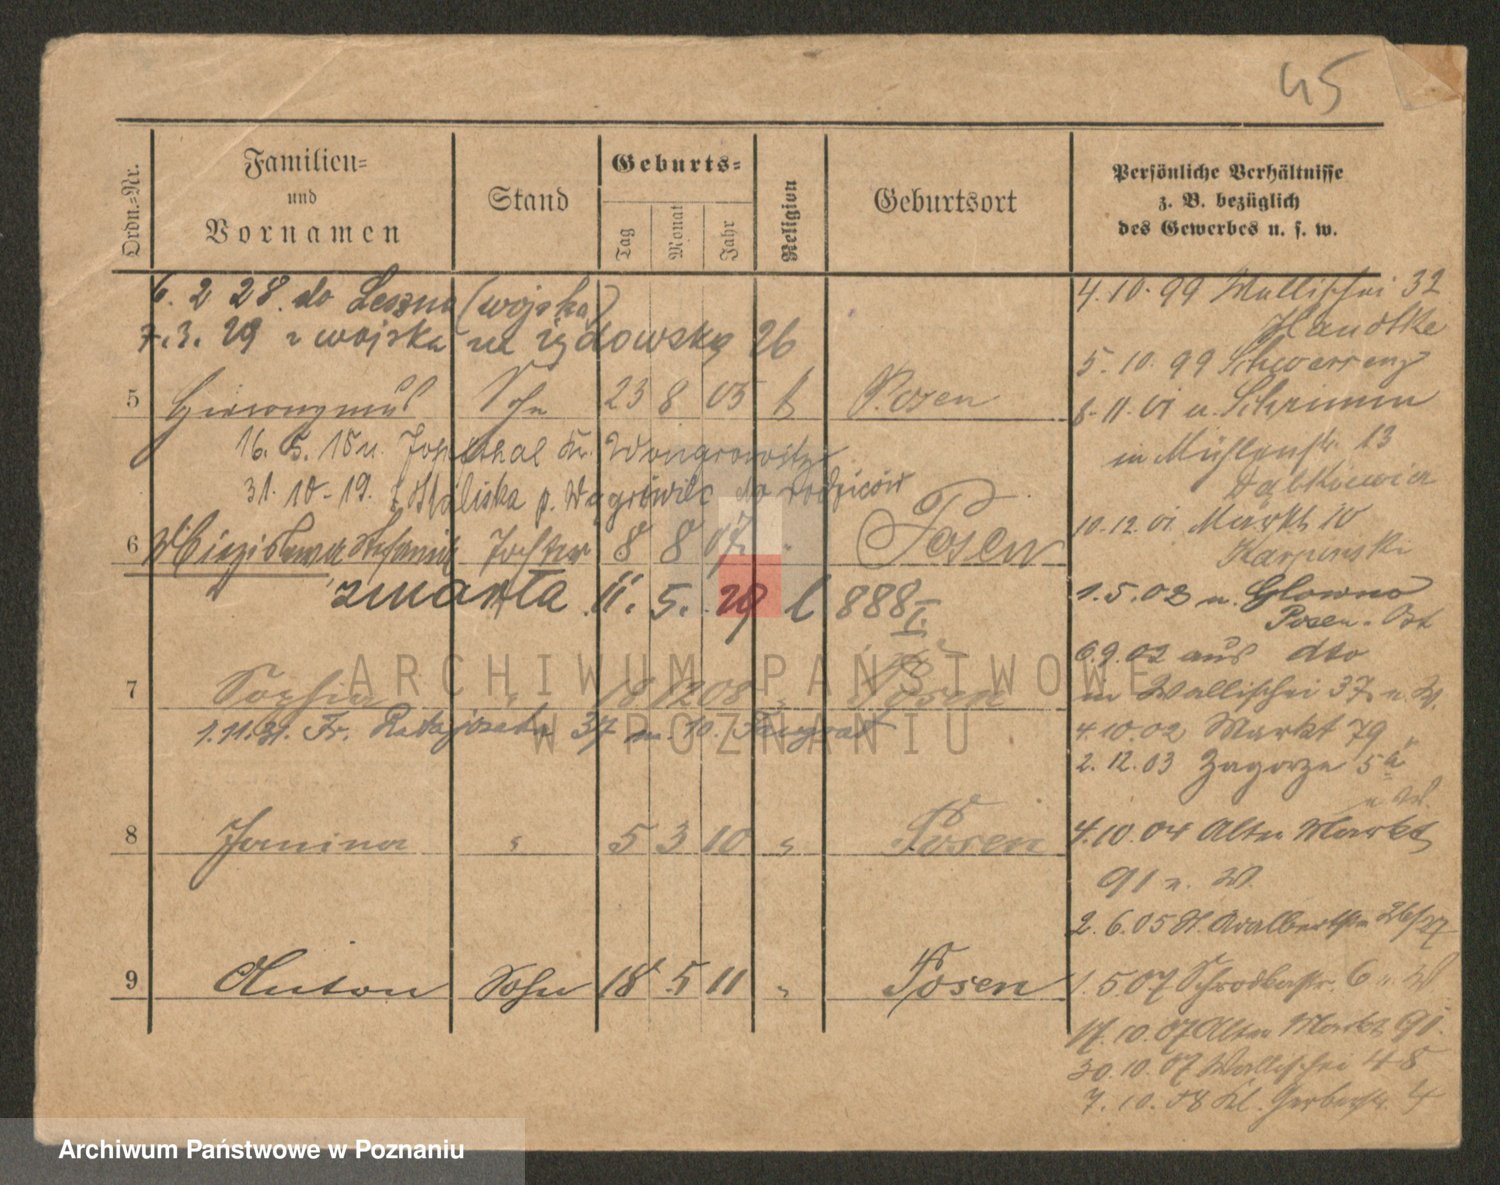 45
Ordn.-Nr.
Familien-
und
Vornamen
Stand
Geburts-
Tag
Monat
Jahr
Religion
Geburtsort
Persönliche Verhältnisse
z. B. bezüglich
des Gewerbes u. s. w.
6. 2 28. do Leszna (wojska)
7. 3. 29 z wojska na żydowską 26
5 Hieronymus Sohn 23 8 05 k Posen
16. 5. 15 u. Kr. Wongrowitz
31. 10-19. p. Wągrówiec do rodziców
6 Mieczisława Stefania Tochter 8 8 07 " Posen
zmarła 11. 5. 29 l 888 I.
7 Sophia " 18 12 08 " Posen
1. 11. 31. Fr. Ratajczaka 37 m. 10.
8 Janina " 5 3 10 " Posen
9 Anton Sohn 18 5 11 " Posen
4. 10. 99 Wallischei 32
Handtke
5. 10. 99 Schwersenz
8. 11. 01 u. Schrimm
in Mühlenstr. 13
Dąbkiewicz
10. 12. 01 Markt 10
Karpinski
1. 5. 02 n. Glowno
Posen-Ost
6. 9. 02 aus dto
in Wallischei 37 u. W.
4. 10. 02 Markt 79
2. 12. 03 Zagorze 5a
u. W.
4. 10. 04 Alter Markt
91 u. W.
2. 6. 05 St. Adalbertstr. 26/27
1. 5 07 Schrodkastr. 6 u. W
17. 10. 07 Alter Markt 91.
30. 10. 07 Wallischei 48
7. 10. 08 Kl. Gerberstr. 4
ARCHIWUM PAŃSTWOWE
W POZNANIU
Archiwum Państwowe w Poznaniu